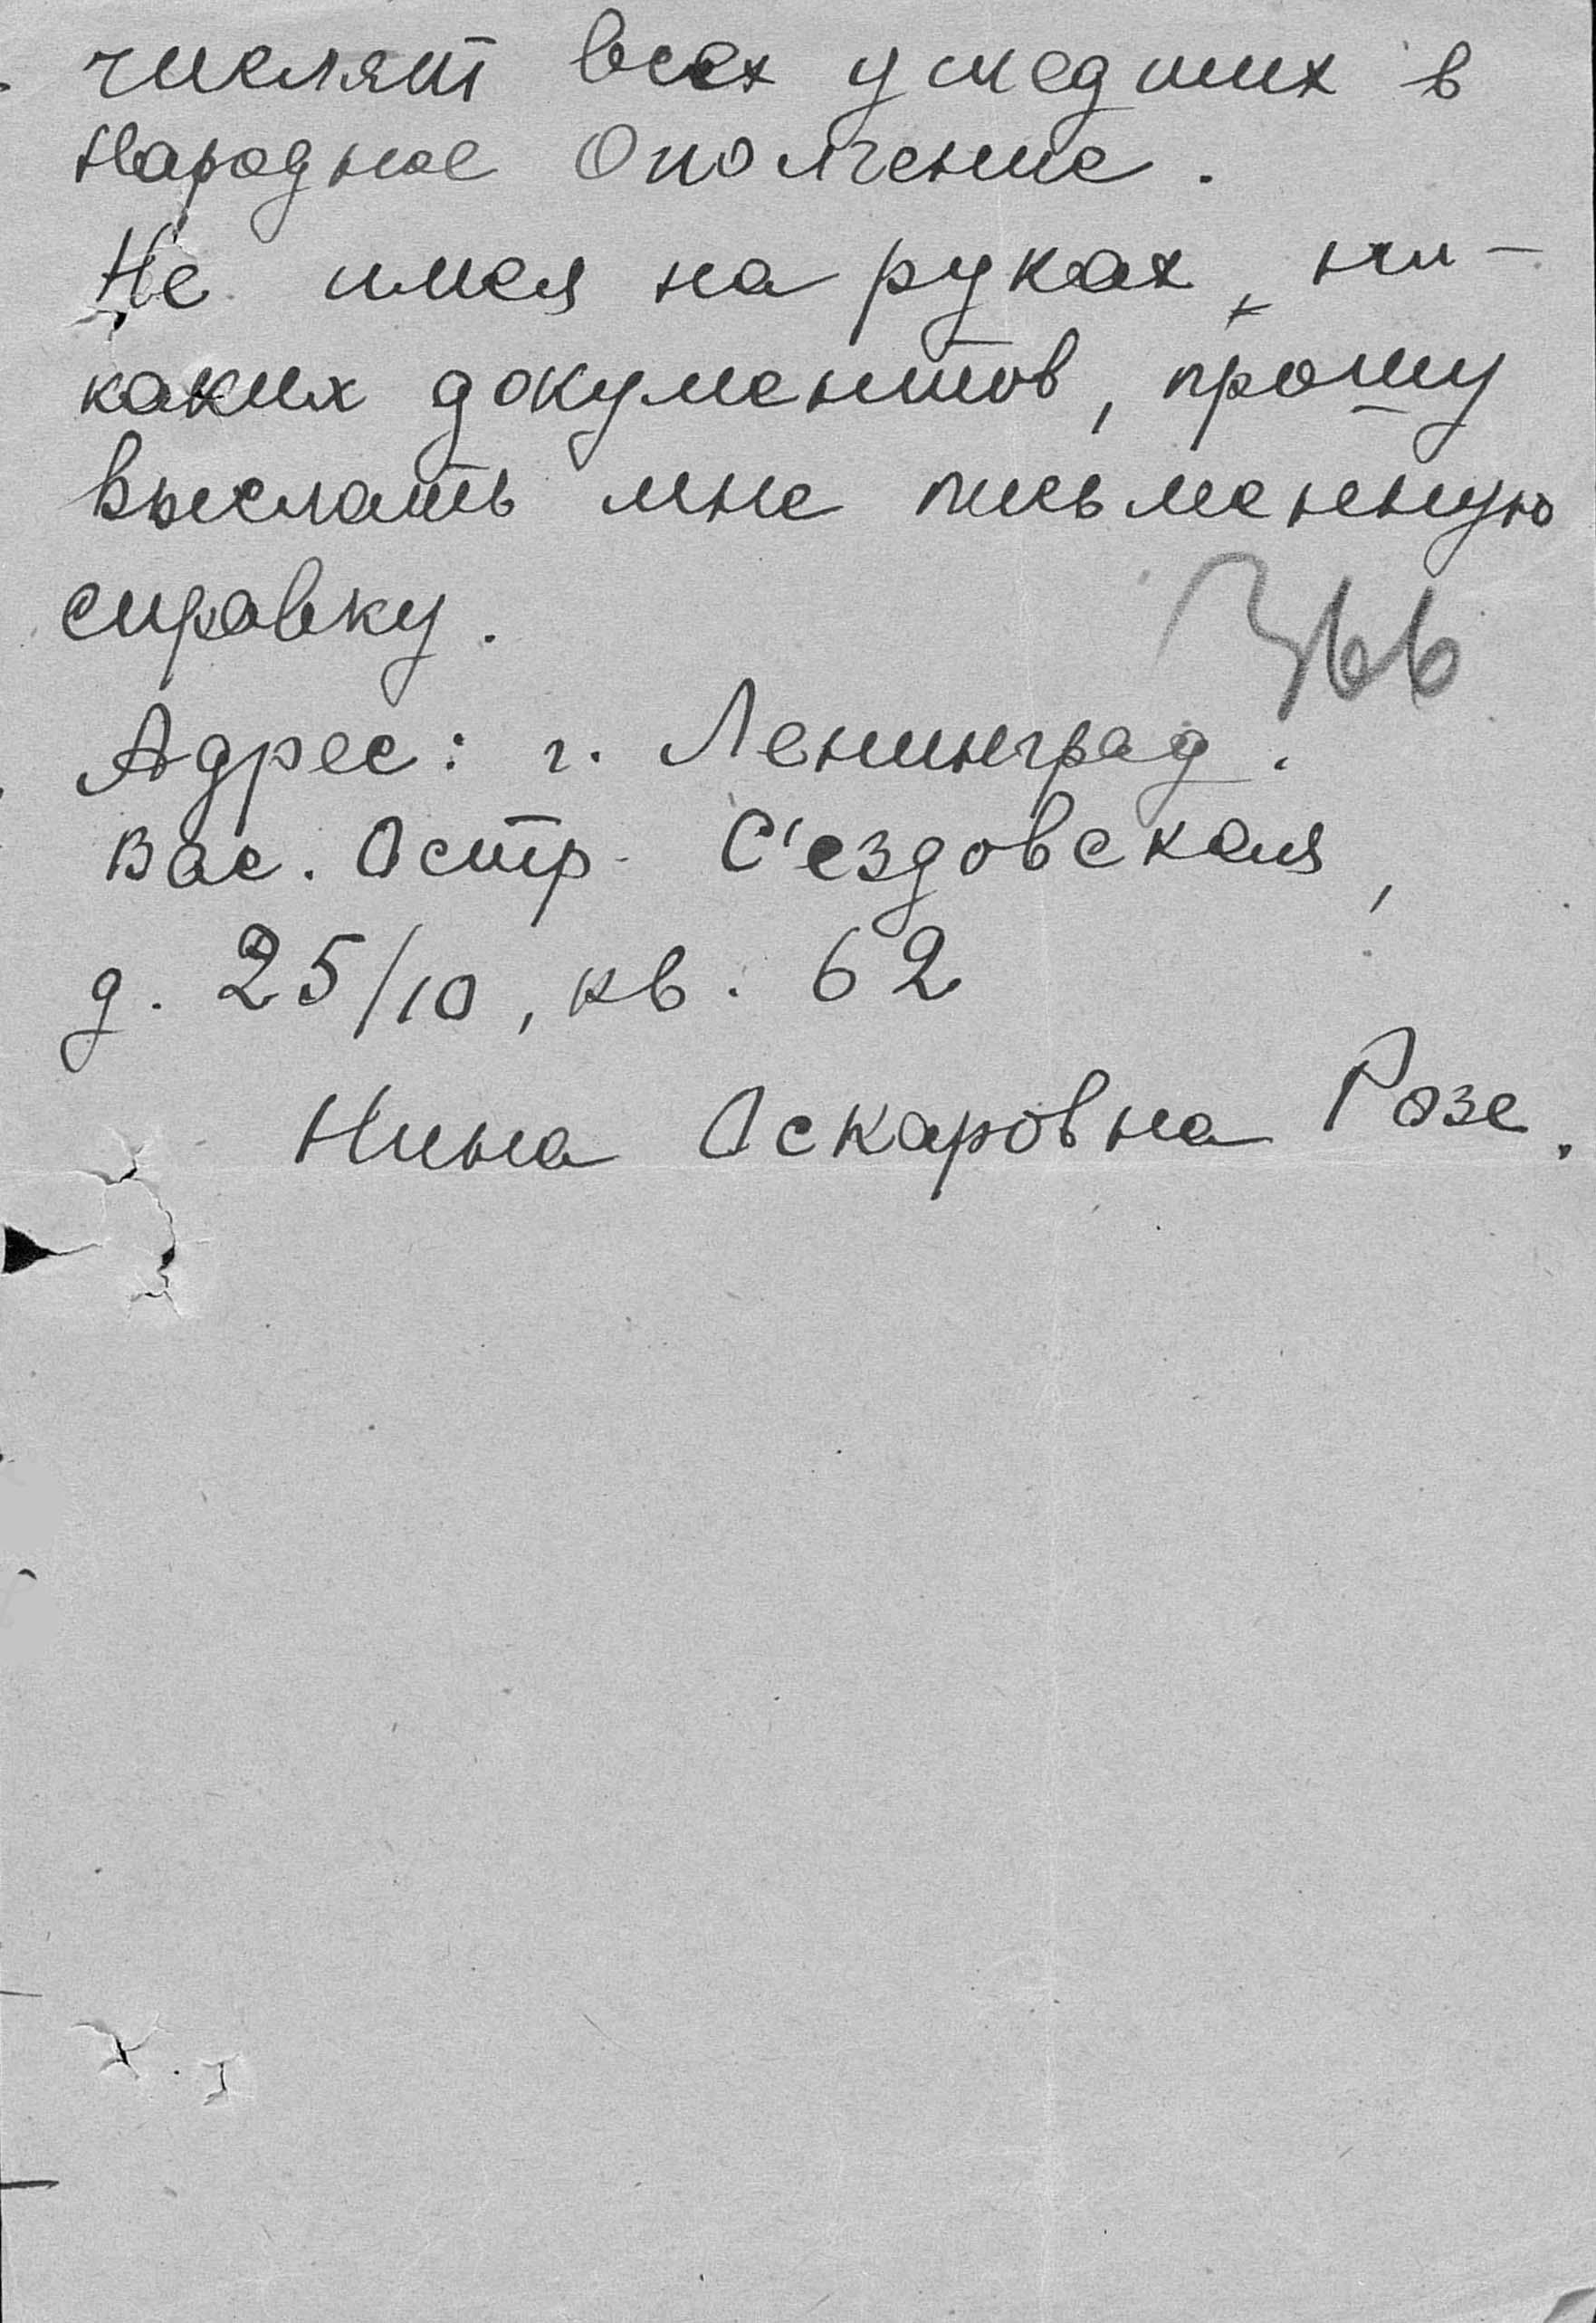 числят всех ушедших в
Народное Ополчение.
Не имея на руках, ни-
каких документов, прошу
выслать мне письменную
справку.
366
Адрес: г. Ленинград.
Вас. Остр. С'ездовская,
д. 25/10, кв. 62
Нина Оскаровна Розе.